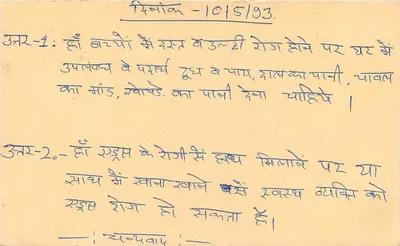 दिनांक - 10/5/93.
उत्तर-1: हाँ बच्चों में दस्त व उल्टी रोग होने पर घर में
उपलब्ध पे पदार्थ दूध व चाय, दाल का पानी, चावल
का मांड, खोपडे का पानी देना चाहिये ।
उत्तर-2.- हाँ एड्स के रोगी से हाथ मिलाने पर या
साथ में खाना खाने से स्वस्थ व्यक्ति को
एड्स रोग हो सकता है।
—: धन्यवाद :—